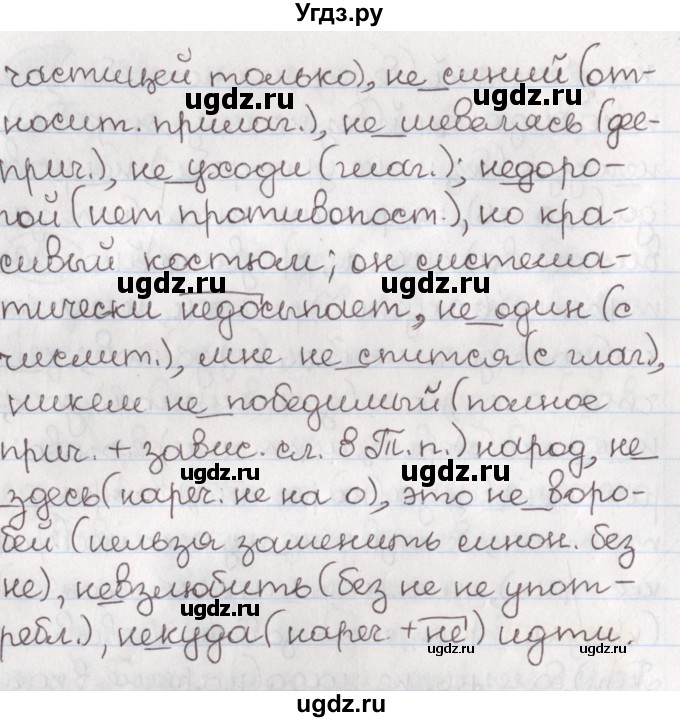 Угдз.ру
частицей только), не синий (от-
носит. прилаг.), не шевелясь (дее-
прич.), не уходи (глаг.); недоро-
гой (нет противопост.), но кра-
сивый костюм; он система-
тически недосыпает, не один (с
числит.), мне не спится (с глаг.),
никем не победимый (полное
прич. + завис. сл. в Т. п.) народ, не
здесь (нареч. не на о), это не воро-
бей (нельзя заменить синон. без
не), невзлюбить (без не не упот-
ребл.), некуда (нареч. + не) идти.
ugdz.ru
ugdz.ru
ugdz.ru
ugdz.ru
ugdz.ru
ugdz.ru
ugdz.ru
ugdz.ru
ugdz.ru
ugdz.ru
ugdz.ru
ugdz.ru
ugdz.ru